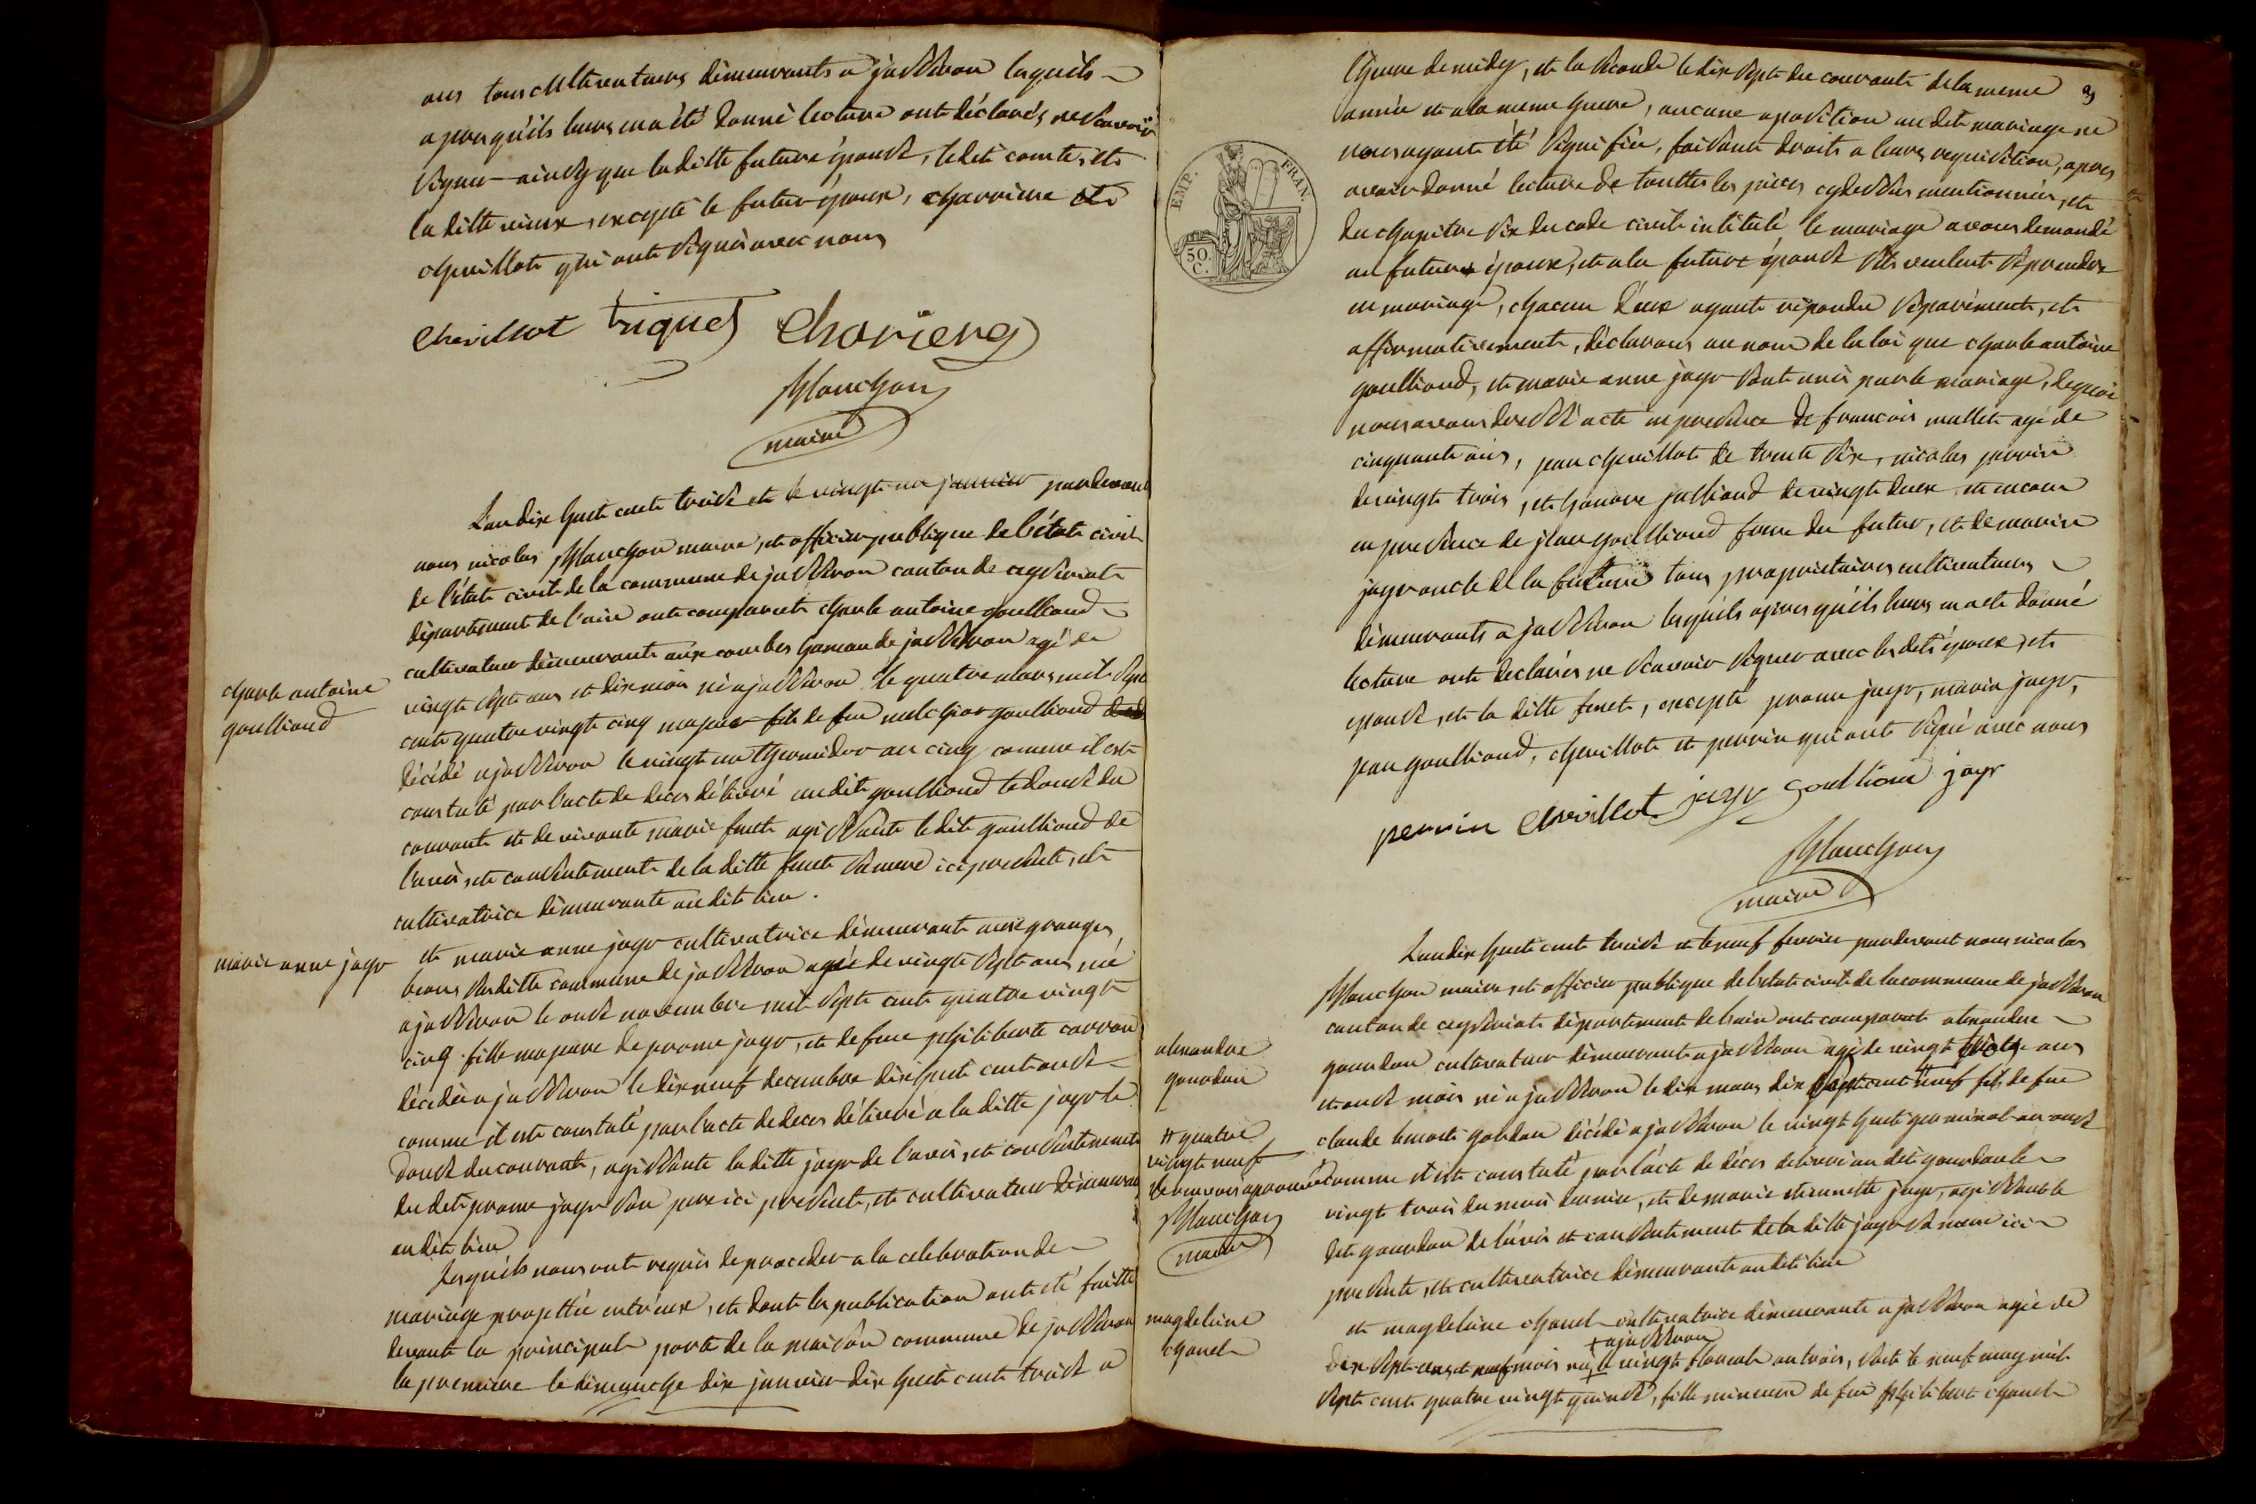 ans tous cultivateurs demeurants a jasseron lesquels
apres qu'ils leurs en a été donné lecture ont déclarés ne scavoir
signer ainsy que la ditte future épouse, ledit comte, et
la ditte vieux, excepté le futur époux, charriere et
chevillot qui ont signés avec nous
chevillot triquet Chariere
Planchon
maire
L'an dix huit cent treise et le vingt un janvier pardevant
nous nicolas Planchon maire, et officier publique de l'état civil
de l'état civil de la commune de jasseron canton de ceyseriat
département de l'ain ont comparut charle antoine goulliond
cultivateur demeurant aux combes hameau de jasseron agé de
vingt sept ans et dix mois né a jasseron le quatre mars mil sept
cent quatre vingt cinq majeur fils de feu melchior goulliond
décédé a jasseron le vingt un thermidor an cinq comme il est
constaté par l'acte de deces délivré au dit goulliond le douse du
courant et de vivante marie furet agissant ledit goulliond de
l'avis, et consentement de la ditte furet sa mere ici presente, et
cultivatrice demeurante au dit lieu.
charle antoine
goulliond
et marie anne jayr cultivatrice demeurant aux granges
bions sur ditte commune de jasseron agée de vingt sept ans née
a jasseron le onse novembre mil sept cent quatre vingt
cinq fille majeure de prome jayr, et de feue philiberte carron
décédée a jasseron le dix neuf decembre dix huit cent onse
comme il est constaté par l'acte de deces délivré a la ditte jayr le
douse du courant, agissante la ditte jayr de l'avis, et consentement
du dit prome jayr son pere ici present, et cultivateur demeurant
au dit lieu
marie anne jayr
Lesquels nous ont requis de proceder a la celebration de
mariage projettée entr'eux, et dont les publication ont été faitte
devant la principale porte de la maison commune de jasseron
la premiere le dimanche dix janvier dix huit cent treise a
3
l'heure de midy, et la seconde le dix sept du courant de la meme
année et a la meme heure, aucune oposition au dit mariage ne
nous ayant été signifiée, faisant droits a leurs requisition, apres
avoir donné lecture de touttes les pieces cydessus mentionnées, et
du chapitre six du code civil intitulé le mariage avons demandé
au futur époux, et a la future épouse s'ils veulent se prendre
en mariage, chacun d'eux ayant répondu séparément, et
affirmativement, déclarons au nom de la loi que charle antoine
goulliond, et marie anne jayr sont unis par le mariage, de quoi
nous avons dressé acte en presence de francois mallet agé de
cinquante ans, jean chevillot de trente six, nicolas perrin
de vingt trois, et honore julliand de vingt deux et encore
en presence de jean goulliond frere du futur, et de marin
jayr oncle de la future tous proprietaires cultivateurs
demeurants a jasseron lesquels apres qu'ils leurs en a été donné
lecture ont déclarés ne scavoir signer avec les dits époux, et
epouse, et la ditte furet, excepté prome jayr, marin jayr,
jean goulliond, chevillot et perrin qui ont signé avec nous
perrin chevillot jayr goulliond jayr
Planchon
maire
EMP. FRAN.
50.
C.
L'an dix huit cent treise et le neuf fevrier pardevant nous nicolas
Planchon maire, et officier publique de l'etat civil de la commune de jasseron
canton de ceyseriat département de l'ain ont comparut alexandre
gourdan cultivateur demeurant a jasseron agé de vingt trois ans
et onse mois né a jasseron le dix mars dix sept cent # neuf fils de feu
claude benoit gourdan décédé a jasseron le vingt huit germinal an onse
comme il est constaté par l'acte de déces delivré au dit gourdan le
vingt trois du mois dernier, et de marie etiennette jayr, agissant le
dit gourdan de l'avis et consentement de la ditte jayr sa mere ici
presente, et cultivatrice demeurante au dit lieu
alexandre
gourdan
# quatre
vingt neuf
le renvois aprouvé
Planchon
maire
et magdelaine chanel cultivatrice demeurante a jasseron agée de
+ a jasseron
dix sept ans et neuf mois née + le vingt floreal an trois, soit le neuf may mil
sept cent quatre vingt quinse, fille mineure de feu philibert chanel
magdelaine
chanel